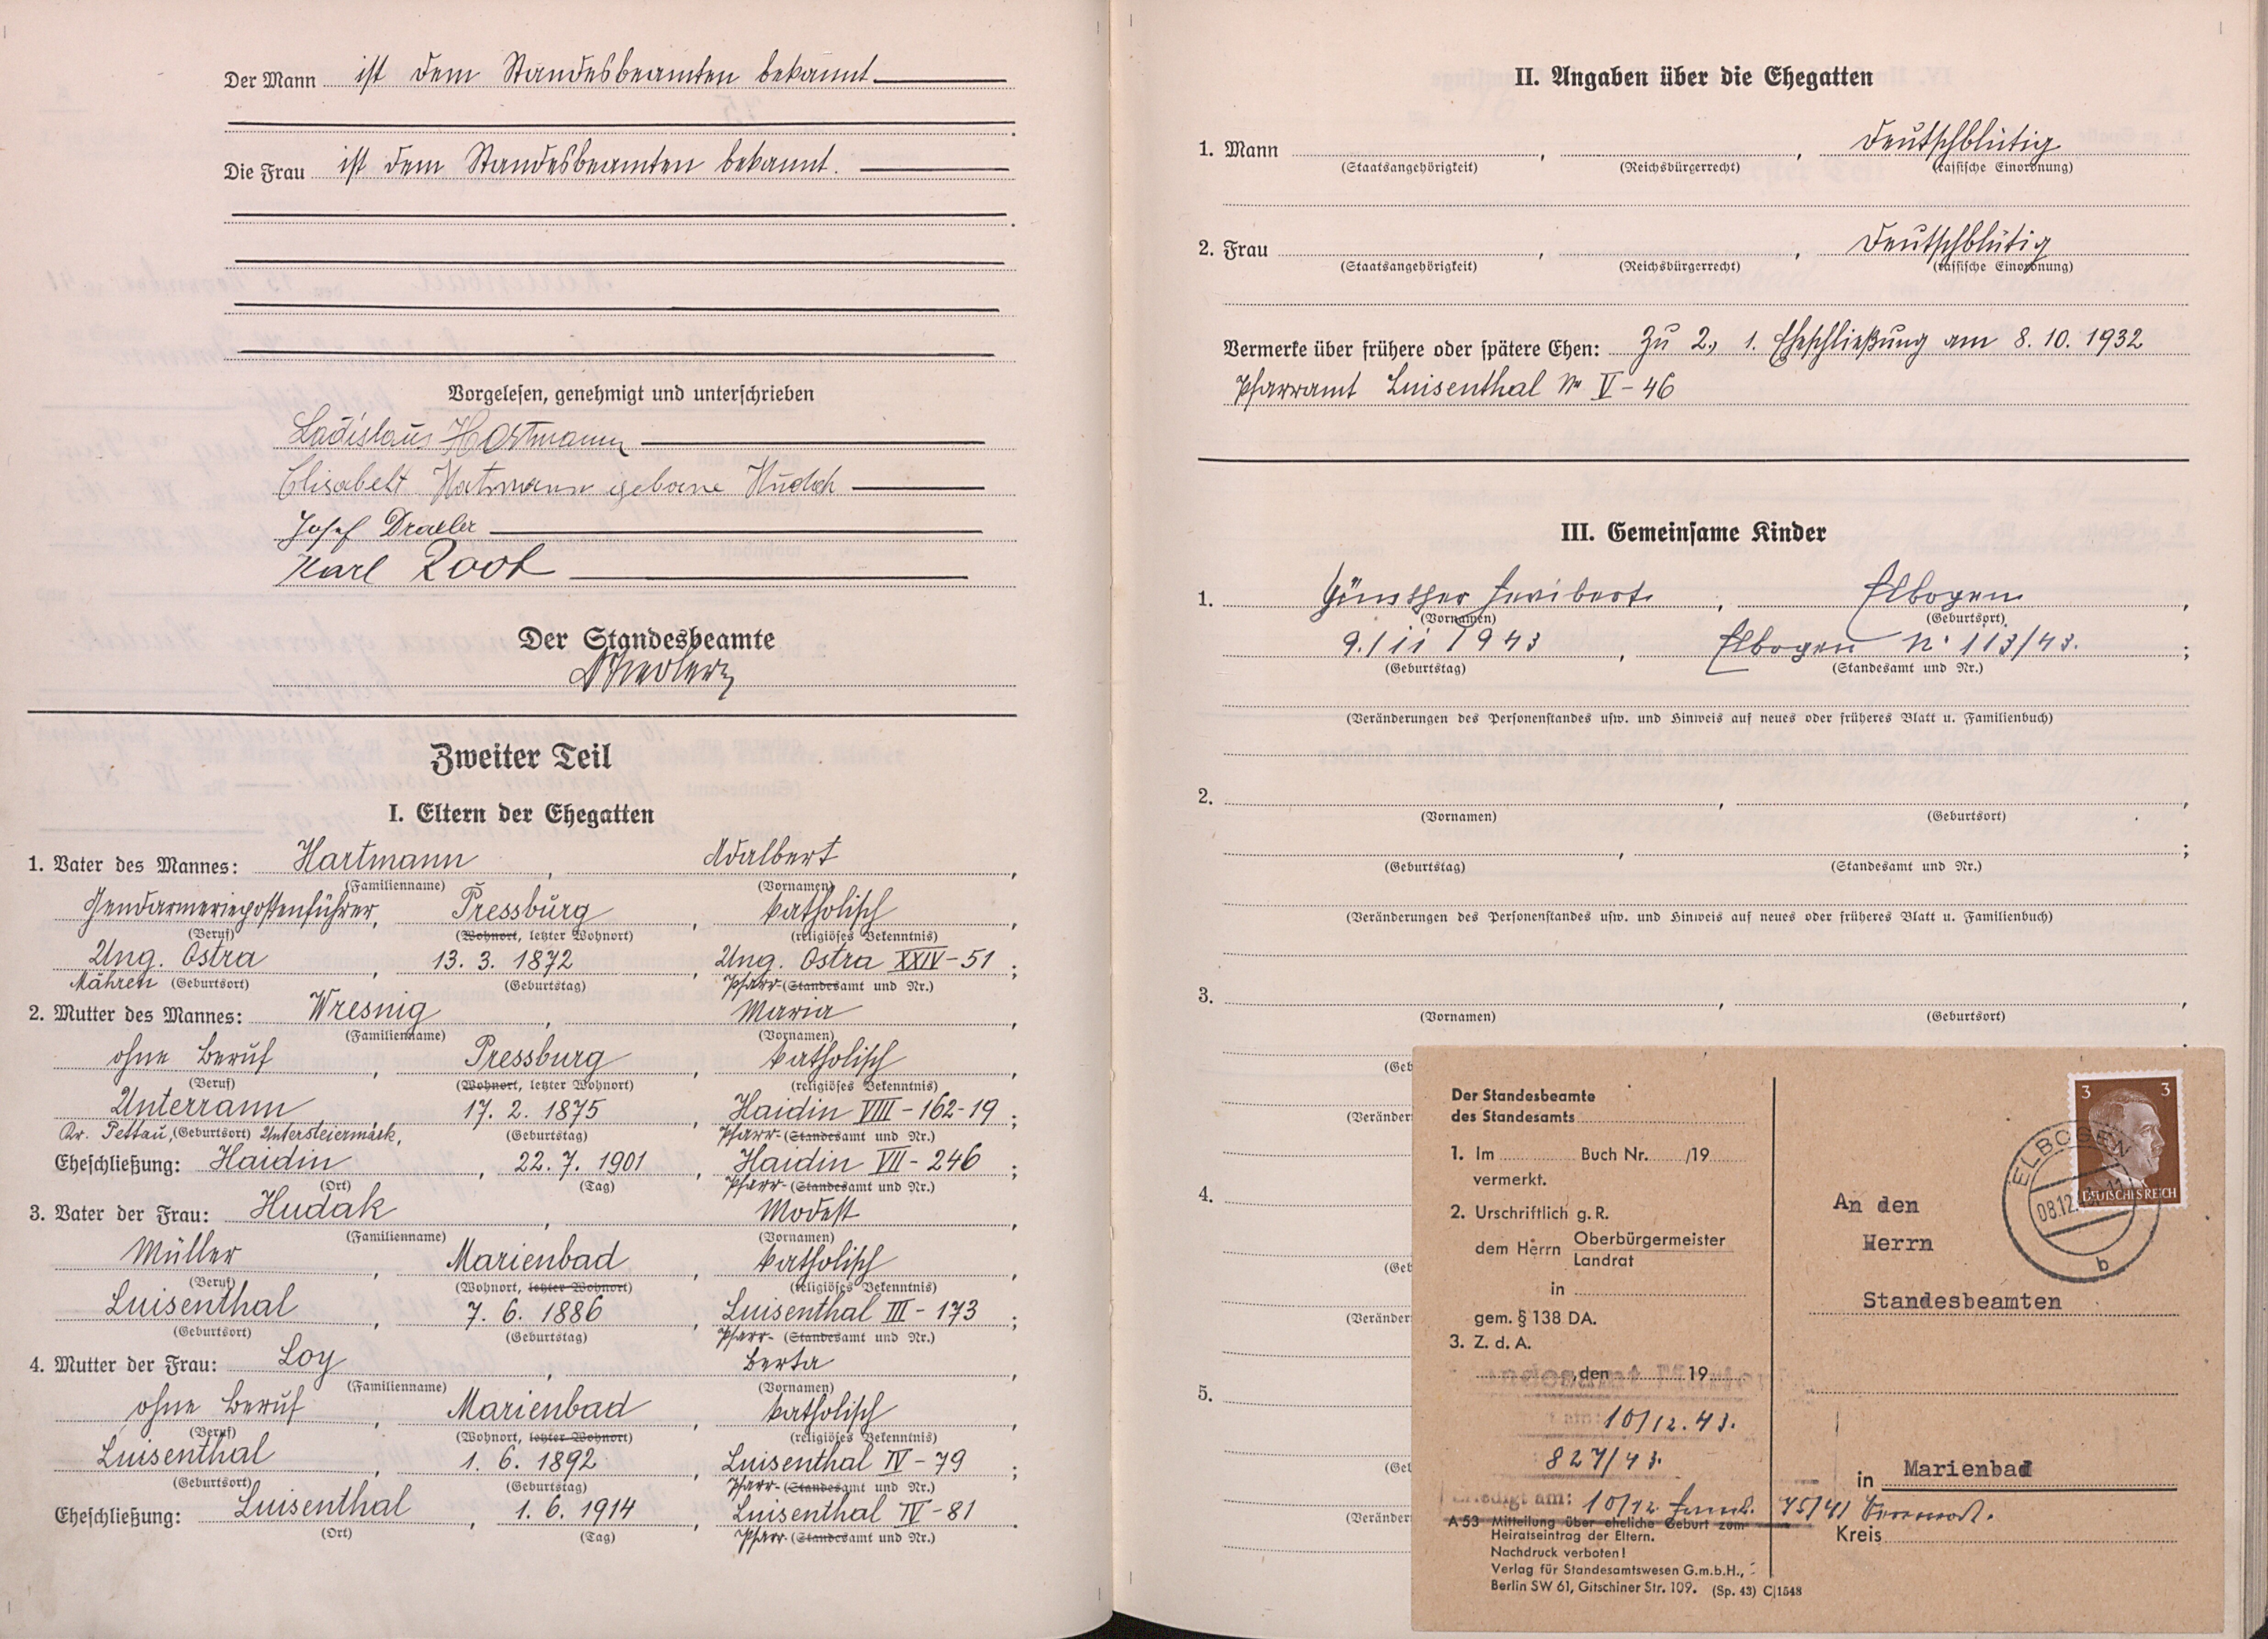 Der Mann ist dem Standesbeamten bekannt.
Die Frau ist dem Standesbeamten bekannt.
Vorgelesen, genehmigt und unterschrieben
Ladislaus Hartmann
Elisabeth Hartmann geborne Hudak
Josef Draxler
Karl
Der Standesbeamte
Zweiter Teil
I. Eltern der Ehegatten
1. Vater des Mannes: Hartmann, Adalbert,
(Familienname) (Vornamen)
Gendarmeriepostenführer, Pressburg, katholisch,
(Beruf) (Wohnort, letzter Wohnort) (religiöses Bekenntnis)
Ung. Ostra, 13. 3. 1872, Ung. Ostra XXIV-51;
Mähren (Geburtsort) (Geburtstag) Pfarr-(Standesamt und Nr.)
2. Mutter des Mannes: Wresnig, Maria,
(Familienname) (Vornamen)
ohne Beruf, Pressburg, katholisch,
(Beruf) (Wohnort, letzter Wohnort) (religiöses Bekenntnis)
Unterrann, 17. 2. 1875, Haidin VIII-162-19;
Kr. Pettau, (Geburtsort) Untersteiermark, (Geburtstag) Pfarr-(Standesamt und Nr.)
Eheschließung: Haidin, 22. 7. 1901, Haidin VII-246;
(Ort) (Tag) Pfarr-(Standesamt und Nr.)
3. Vater der Frau: Hudak, Modest,
(Familienname) (Vornamen)
Müller, Marienbad, katholisch,
(Beruf) (Wohnort, letzter Wohnort) (religiöses Bekenntnis)
Luisenthal, 7. 6. 1886, Luisenthal III-173;
(Geburtsort) (Geburtstag) Pfarr-(Standesamt und Nr.)
4. Mutter der Frau: Loy, Berta,
(Familienname) (Vornamen)
ohne Beruf, Marienbad, katholisch,
(Beruf) (Wohnort, letzter Wohnort) (religiöses Bekenntnis)
Luisenthal, 1. 6. 1892, Luisenthal IV-79;
(Geburtsort) (Geburtstag) Pfarr-(Standesamt und Nr.)
Eheschließung: Luisenthal, 1. 6. 1914, Luisenthal IV-81.
(Ort) (Tag) Pfarr-(Standesamt und Nr.)
II. Angaben über die Ehegatten
1. Mann, , deutschblütig
(Staatsangehörigkeit) (Reichsbürgerrecht) (rassische Einordnung)
2. Frau, , deutschblütig
(Staatsangehörigkeit) (Reichsbürgerrecht) (rassische Einordnung)
Vermerke über frühere oder spätere Ehen: Zu 2., 1. Eheschließung am 8. 10. 1932
Pfarramt Luisenthal Nr V-46
III. Gemeinsame Kinder
1. Günther Heribert, Elbogen,
(Vornamen) (Geburtsort)
9./11 1943, Elbogen Nr 113/43.;
(Geburtstag) (Standesamt und Nr.)
(Veränderungen des Personenstandes usw. und Hinweis auf neues oder früheres Blatt u. Familienbuch)
2. , ,
(Vornamen) (Geburtsort)
, ;
(Geburtstag) (Standesamt und Nr.)
(Veränderungen des Personenstandes usw. und Hinweis auf neues oder früheres Blatt u. Familienbuch)
3. , ,
(Vornamen) (Geburtsort)
(Geb
(Veränder
4.
(Geb
(Veränder
5.
(Geb
(Veränder
Der Standesbeamte
des Standesamts
1. Im Buch Nr. /19
vermerkt.
2. Urschriftlich g. R.
dem Herrn Oberbürgermeister
Landrat
in
gem. § 138 DA.
3. Z. d. A.
, den 19
am: 10/12. 43.
827/43.
Erledigt am: 10/12. 75/41
A 53 Mitteilung über eheliche Geburt zum
Heiratseintrag der Eltern.
Nachdruck verboten!
Verlag für Standesamtswesen G.m.b.H.,
Berlin SW 61, Gitschiner Str. 109. (Sp. 43) C|1548
3 3
DEUTSCHES REICH
ELBOGEN
08.12.
b
An den
Herrn
Standesbeamten
in Marienbad
Kreis